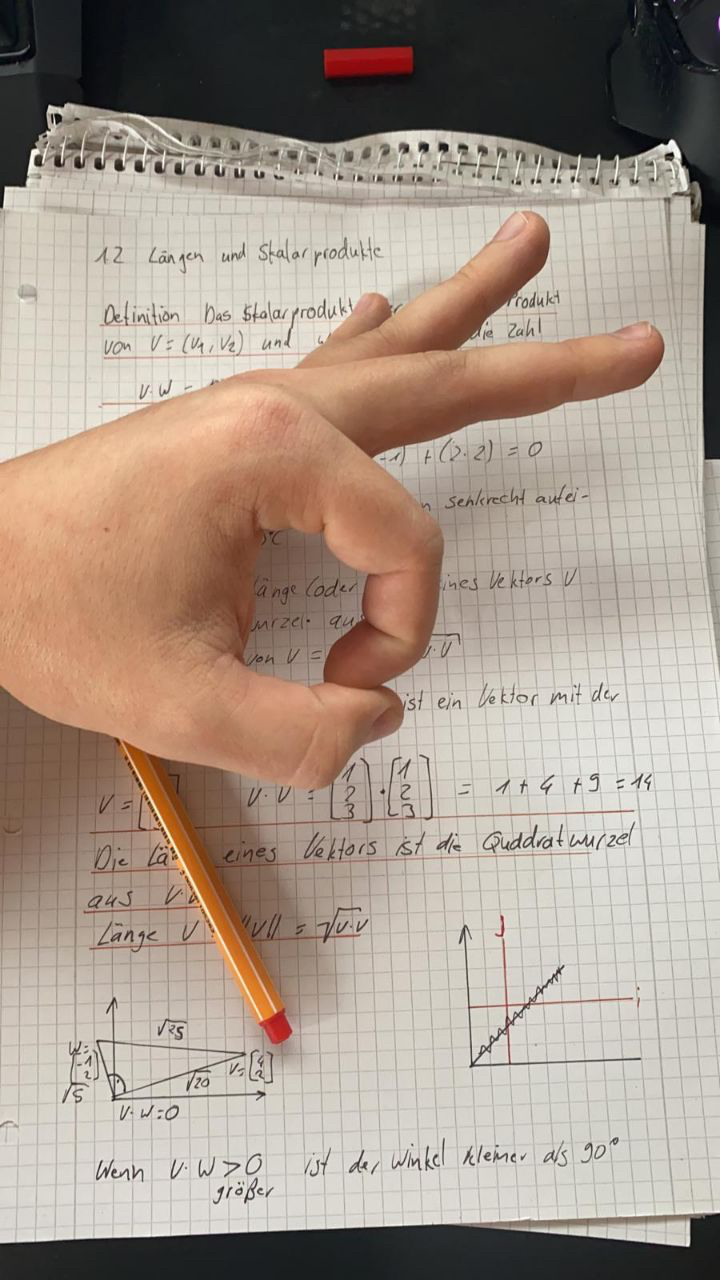 1.2 Längen und Skalarprodukte
Definition Das Skalarprodukt Produkt
von V = (V1, V2) und die Zahl
V·W =
-1) + (2·2) = 0
senkrecht aufei-
eines Vektors V
aus
von V = √V·V
ist ein Vektor mit der
V = [ V·V = [1 2 3]·[1 2 3] = 1 + 4 + 9 = 14
Die eines Vektors ist die Quddratwurzel
aus V·V
Länge V ||V|| = √V·V
j
i
√25
W = [-1 2]
√5
√20
V = [4 2]
V·W=0
Wenn V·W > 0 ist der Winkel kleiner als 90°
größer